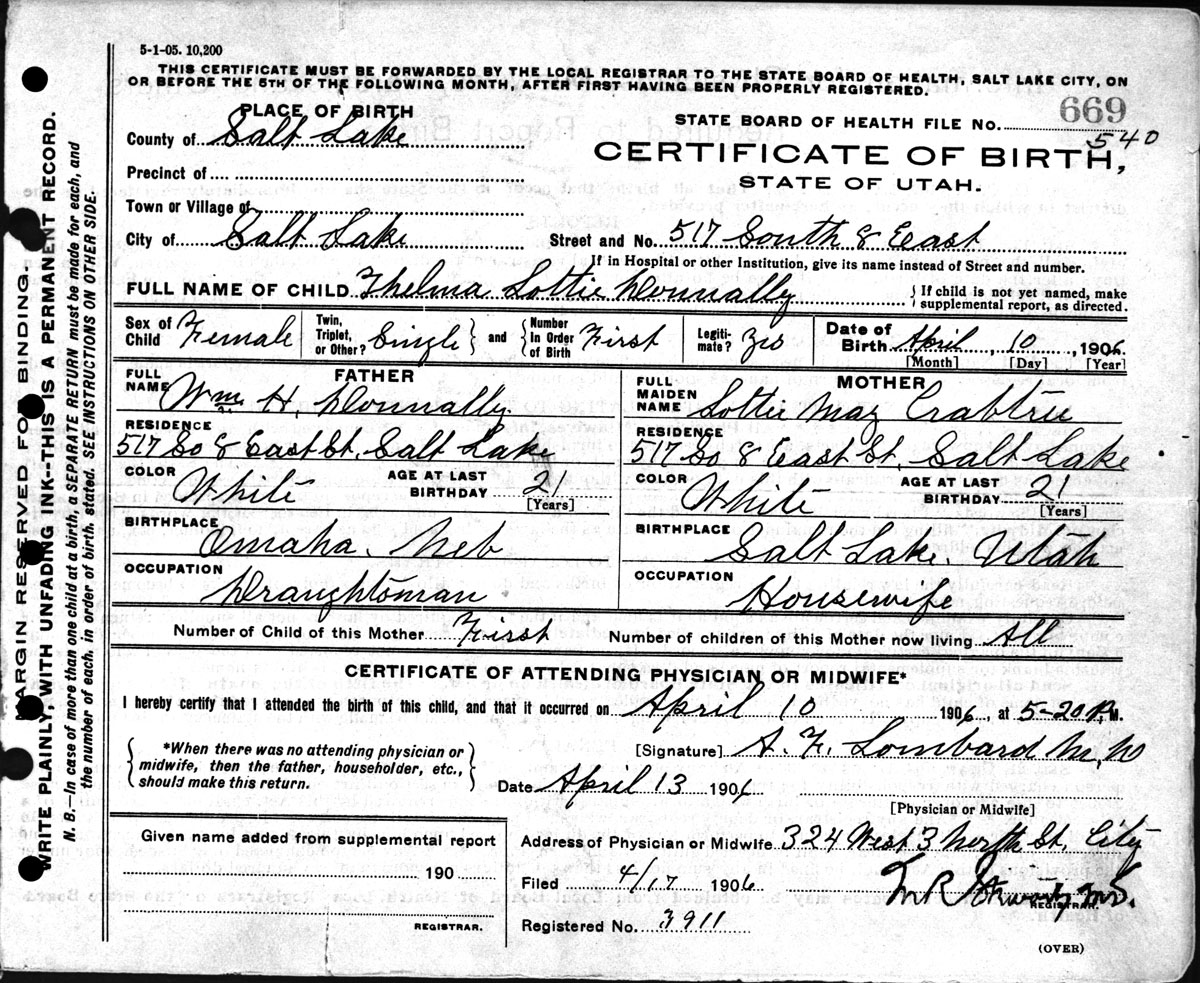 5-1-05. 10,200
THIS CERTIFICATE MUST BE FORWARDED BY THE LOCAL REGISTRAR TO THE STATE BOARD OF HEALTH, SALT LAKE CITY, ON
OR BEFORE THE 5TH OF THE FOLLOWING MONTH, AFTER FIRST HAVING BEEN PROPERLY REGISTERED.
PLACE OF BIRTH
669
STATE BOARD OF HEALTH FILE No.
540
County of Salt Lake
CERTIFICATE OF BIRTH,
Precinct of
STATE OF UTAH.
Town or Village of
City of Salt Lake Street and No. 517 South 8 East
If in Hospital or other Institution, give its name instead of Street and number.
FULL NAME OF CHILD Thelma Lottie Donnally { If child is not yet named, make supplemental report, as directed.
Sex of Child Female Twin, Triplet, or Other? Single } and { Number In Order of Birth First Legiti- mate? Yes Date of Birth April, 10, 1906.
[Month] [Day] [Year]
FATHER
FULL NAME Wm H. Donnally
RESIDENCE
517 So 8 East St. Salt Lake
COLOR White AGE AT LAST BIRTHDAY 21
[Years]
BIRTHPLACE
Omaha. Neb
OCCUPATION
Draughtsman
MOTHER
FULL MAIDEN NAME Lottie May Crabtree
RESIDENCE
517 So 8 East St. Salt Lake
COLOR White AGE AT LAST BIRTHDAY 21
[Years]
BIRTHPLACE
Salt Lake. Utah
OCCUPATION
Housewife
Number of Child of this Mother First Number of children of this Mother now living All
CERTIFICATE OF ATTENDING PHYSICIAN OR MIDWIFE*
I hereby certify that I attended the birth of this child, and that it occurred on April 10 1906, at 5-20 P.M.
{ *When there was no attending physician or midwife, then the father, householder, etc., should make this return. }
[Signature] A. F. Lombard M.D
Date April 13 1906
[Physician or Midwife]
Given name added from supplemental report
190
REGISTRAR.
Address of Physician or Midwife 324 West 3 North St. City
Filed 4/17 1906
REGISTRAR.
Registered No. 3911
(OVER)
MARGIN RESERVED FOR BINDING.
WRITE PLAINLY, WITH UNFADING INK--THIS IS A PERMANENT RECORD.
N. B.—In case of more than one child at a birth, a SEPARATE RETURN must be made for each, and
the number of each, in order of birth, stated. SEE INSTRUCTIONS ON OTHER SIDE.